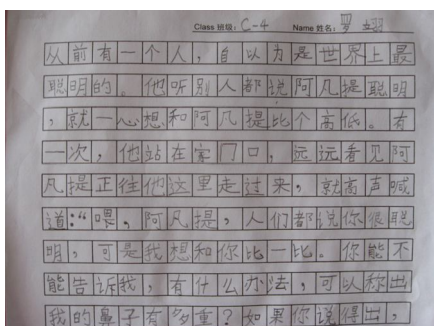 Class 班级: C-4 Name 姓名: 罗
从前有一个人，自以为是世界上最
聪明的。他听别人都说阿凡提聪明
，就一心想和阿凡提比个高低。有
一次，他站在家门口，远远看见阿
凡提正往他这里走过来，就高声喊
道：“喂，阿凡提，人们都说你很聪
明，可是我想和你比一比。你能不
能告诉我，有什么办法，可以称出
我的鼻子有多重？如果你说得出，